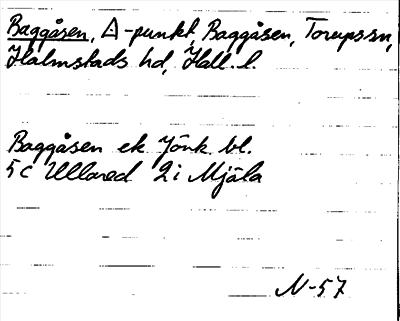 Baggåsen, △-punkt i Baggåsen, Torupssn,
Halmstads hd, Hall. l.
Baggåsen ek Jönk. bl.
5C Ullared 2i Mjäla
N-57